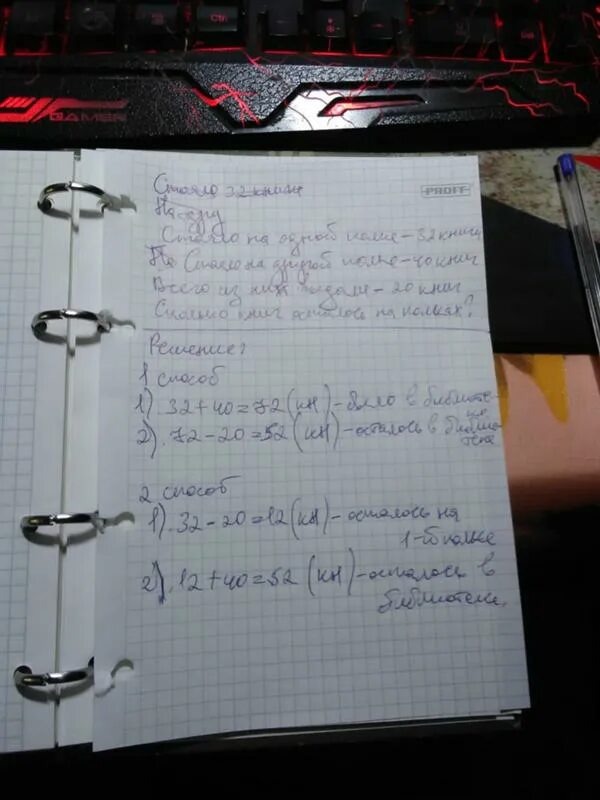 GAMER
Ctrl
PROFF
Стояло 32 книги
На одну
Стояло на одной полке - 32 книги
На Стояло на другой полке - 40 книг
Всего из них выдали - 20 книг
Сколько книг осталось на полках?
Решение:
1 способ
1). 32+40=72 (кн) - было в библиоте-
ке
2). 72-20=52 (кн) - осталось в библио
теке
2 способ
1). 32-20=12 (кн) - осталось на
1-ой полке
2). 12+40=52 (кн) - осталось в
библиотеке.